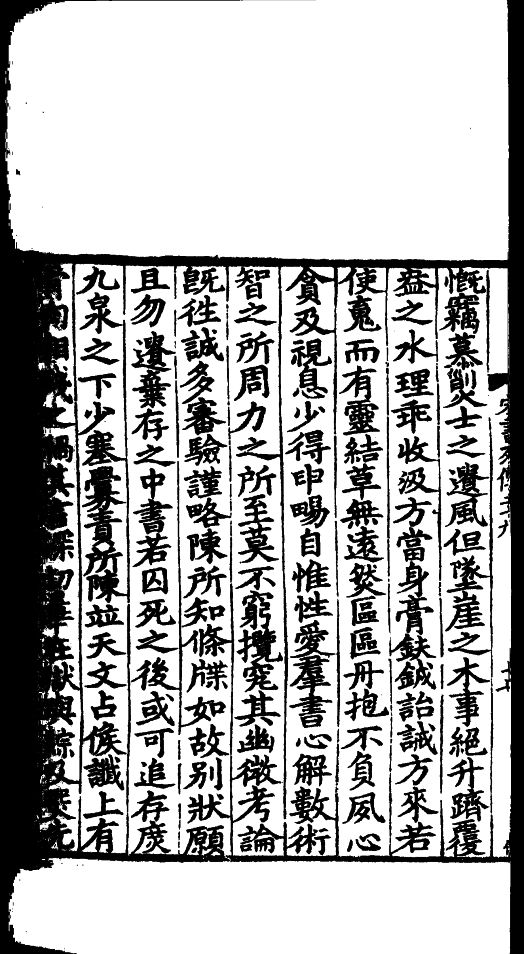 慨竊慕烈士之遺風但墜崖之木事絕升躋覆
盎之水理乖收汲方當身膏鈇鉞詒誡方來若
使䰟而有靈結草無遠然區區丹抱不負夙心
貪及視息少得申暢自惟性愛羣書心解數術
智之所周力之所至莫不窮攬究其幽微考論
旣徃誠多審驗謹略陳所知條牒如故别狀願
且勿遺棄存之中書若囚死之後或可追存庶
九泉之下少塞釁責所陳竝天文占候讖上有